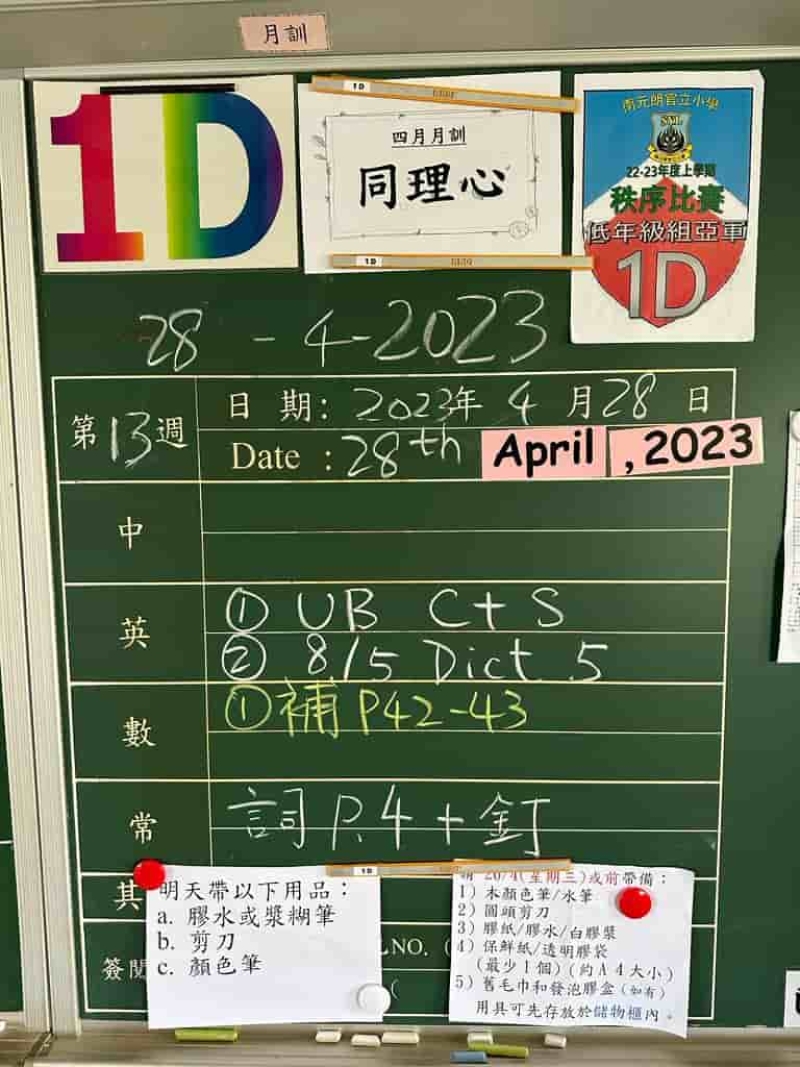 月訓
1D
1D
四月月訓
同理心
1D
南元朗官立小學
22-23年度上學期
秩序比賽
低年級組亞軍
1D
28-4-2023
第13週
日期: 2023年4月28日
Date : 28th April , 2023
中
英
① UB C+S
② 8/5 Dict 5
數
① 補 P42-43
常
詞 P.4 + 釘
其
簽閱
NO. (
(
1D
明天帶以下用品：
a. 膠水或漿糊筆
b. 剪刀
c. 顏色筆
26/4(星期三)或前帶備：
1) 木顏色筆/水筆
2) 圓頭剪刀
3) 膠紙/膠水/白膠漿
4) 保鮮紙/透明膠袋
(最少1個)(約A4大小)
5) 舊毛巾和發泡膠盒(如有)
用具可先存放於儲物櫃內。